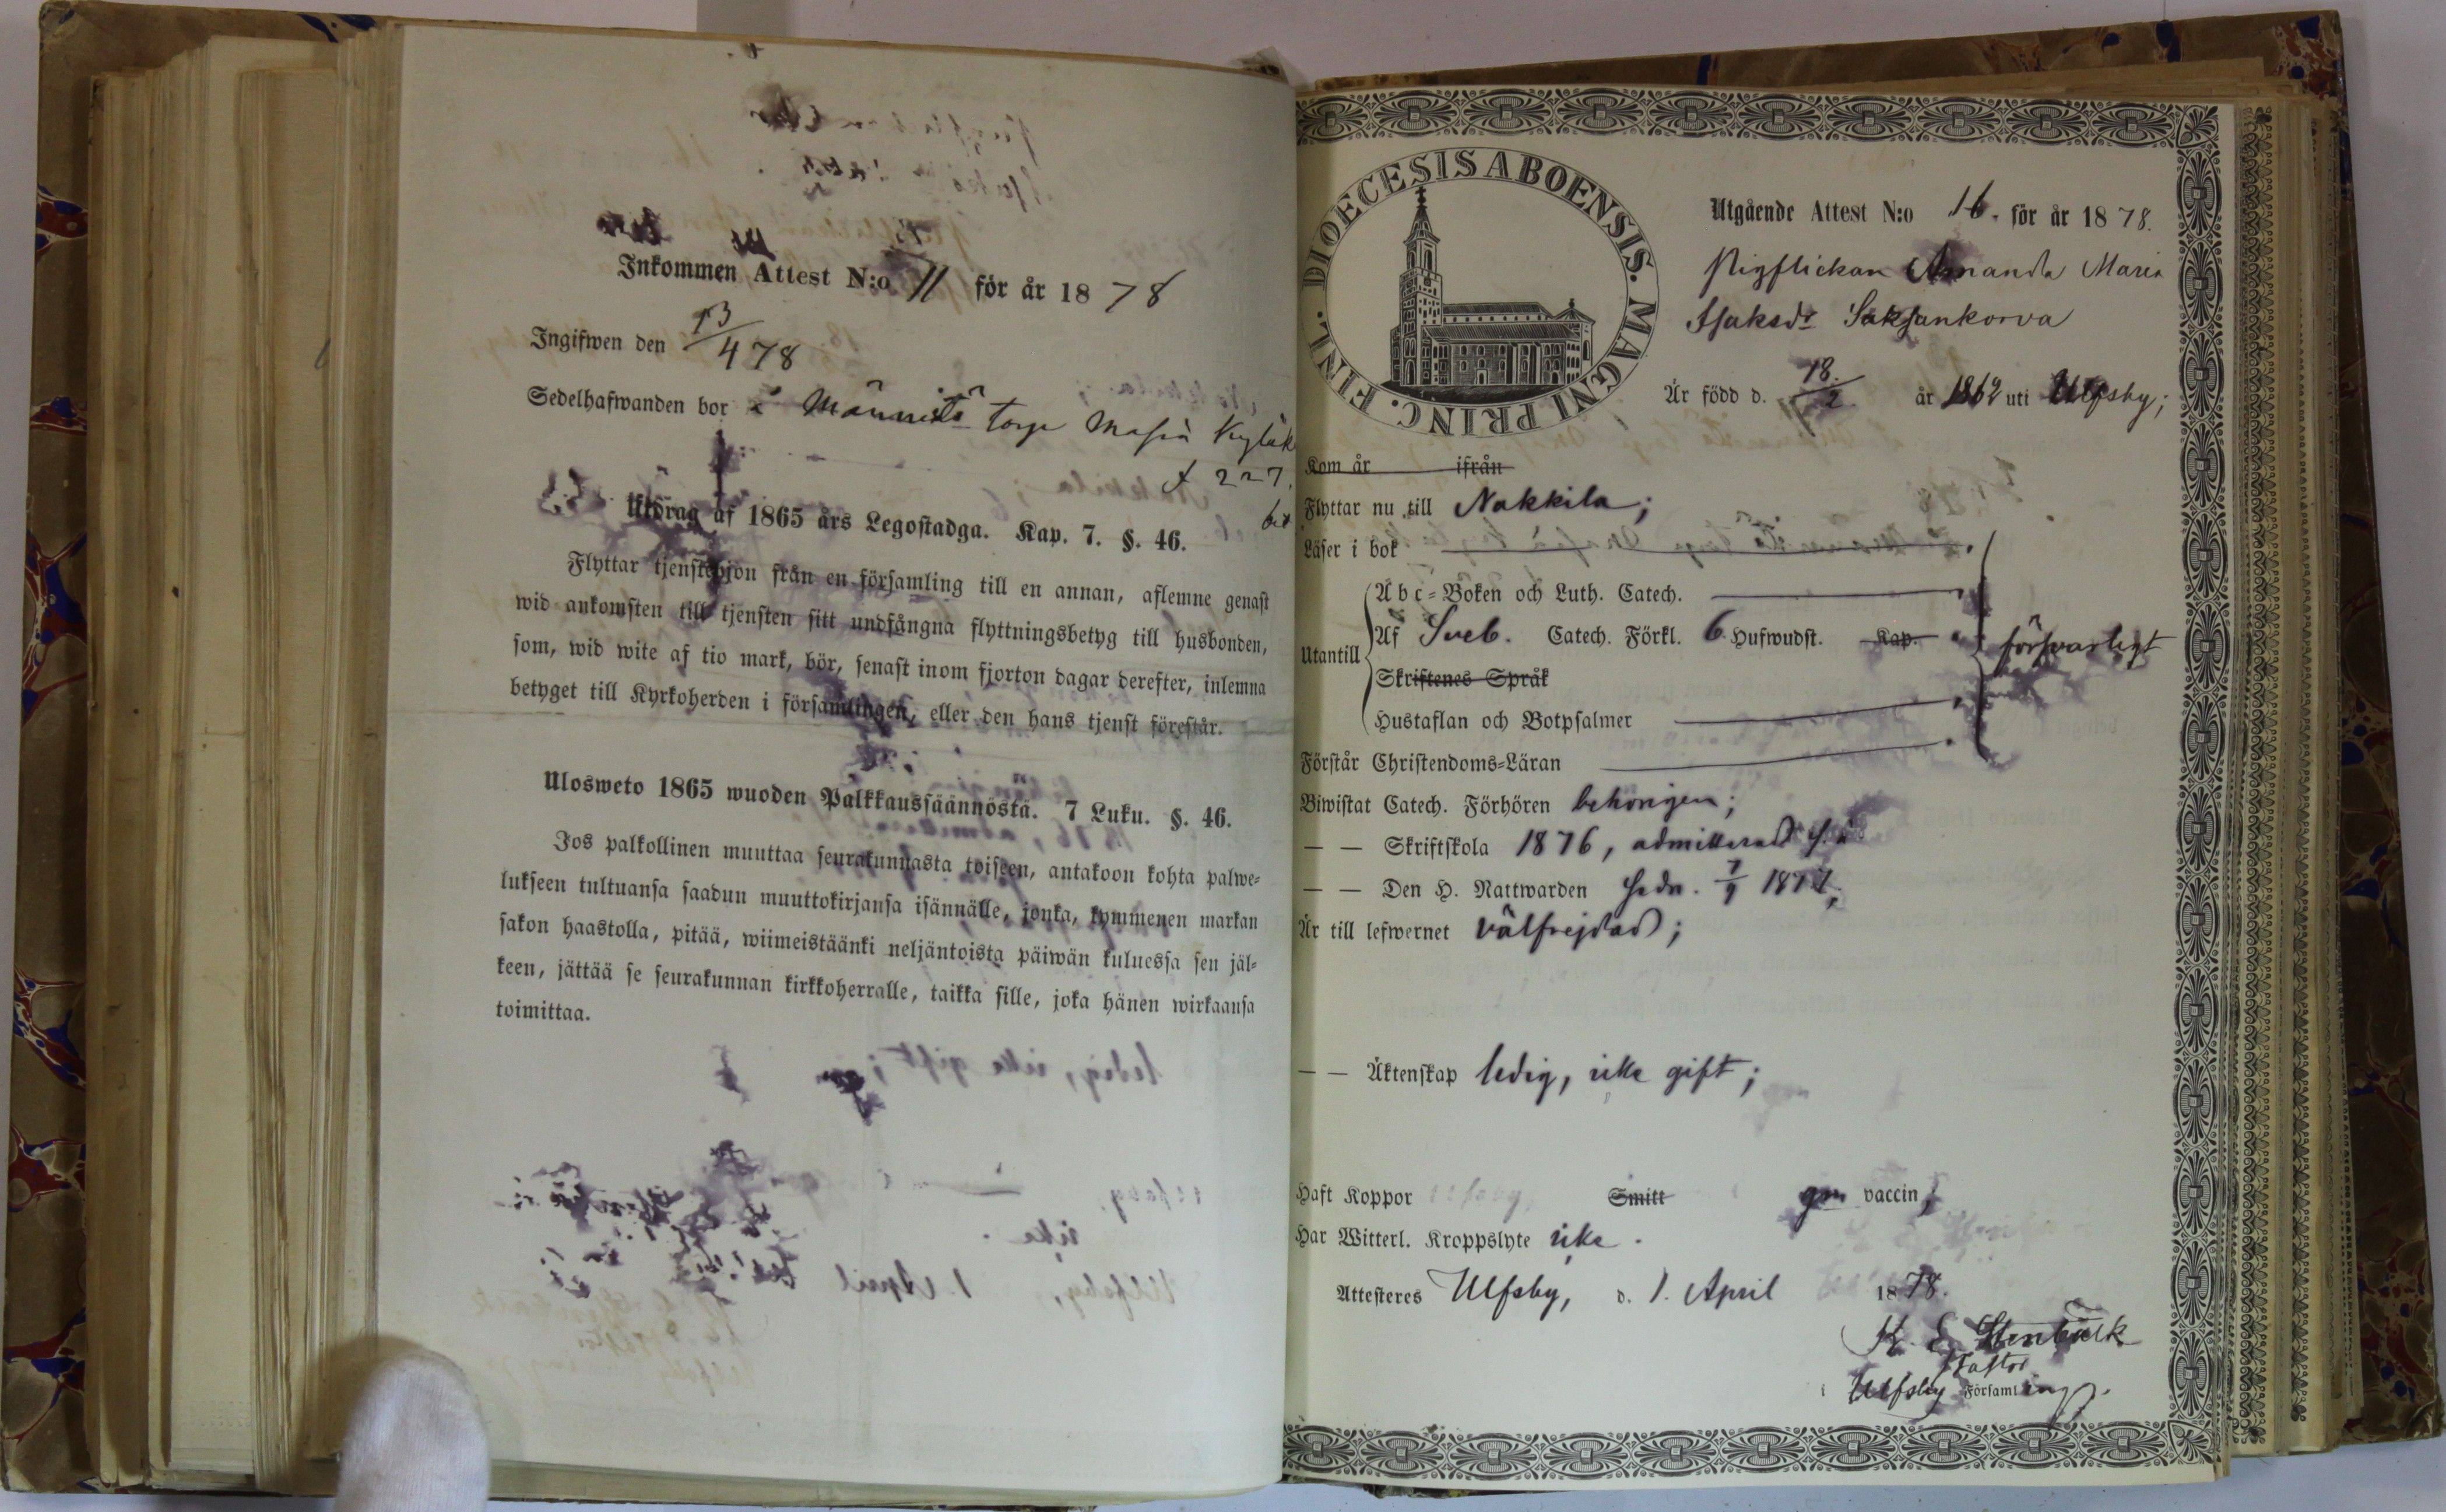 Inkommen Attest N:o 11 för år 1878
Ingifwen den 13/4 78
Sedelhafwanden bor i Männistö torp Masia
f 227.
Utdrag af 1865 års Legostadga. Kap. 7. §. 46.
Flyttar tjenstehjon från en församling till en annan, aflemne genast
wid ankomsten till tjensten sitt undfångna flyttningsbetyg till husbonden,
som, wid wite af tio mark, bör, senast inom fjorton dagar derefter, inlemna
betyget till Kyrkoherden i församlingen, eller den hans tjenst förestår.
Ulosweto 1865 wuoden Palkkaussäännöstä. 7 Luku. §. 46.
Jos palkollinen muuttaa seurakunnasta toiseen, antakoon kohta palwe=
lukseen tultuansa saadun muuttokirjansa isännälle, jonka, kymmenen markan
sakon haastolla, pitää, wiimeistäänki neljäntoista päiwän kuluessa sen jäl=
keen, jättää se seurakunnan kirkkoherralle, taikka sille, joka hänen wirkaansa
toimittaa.
DIOECESIS ABOENSIS. MAGNI PRINC. FINL.
Utgående Attest N:o 16. för år 1878.
Pigflickan Amanda Maria
Isaksdr Saksankorva
Är född d. 18/2 år 1862 uti Ulfsby;
Kom år ifrån
Flyttar nu till Nakkila;
Läser i bok
Abc=Boken och Luth. Catech.
Utantill
Af Sveb. Catech. Förkl. 6 Hufwudst. Kap.
försvarligt
Skriftenes Språk
Hustaflan och Botpsalmer
Förstår Christendoms=Läran
Biwistat Catech. Förhören behörigen;
— — Skriftskola 1876, admitterad s. å
— — Den H. Nattwarden sedn. 7/9 1877;
Är till lefwernet välfrejdad;
— — Äktenskap ledig, icke gift;
Haft Koppor Smitt gm vaccin;
Har Witterl. Kroppslyte icke.
Attesteres Ulfsby, d. 1. April 1878.
K. E. Stenbäck
Pastor
i Ulfsby Församling.